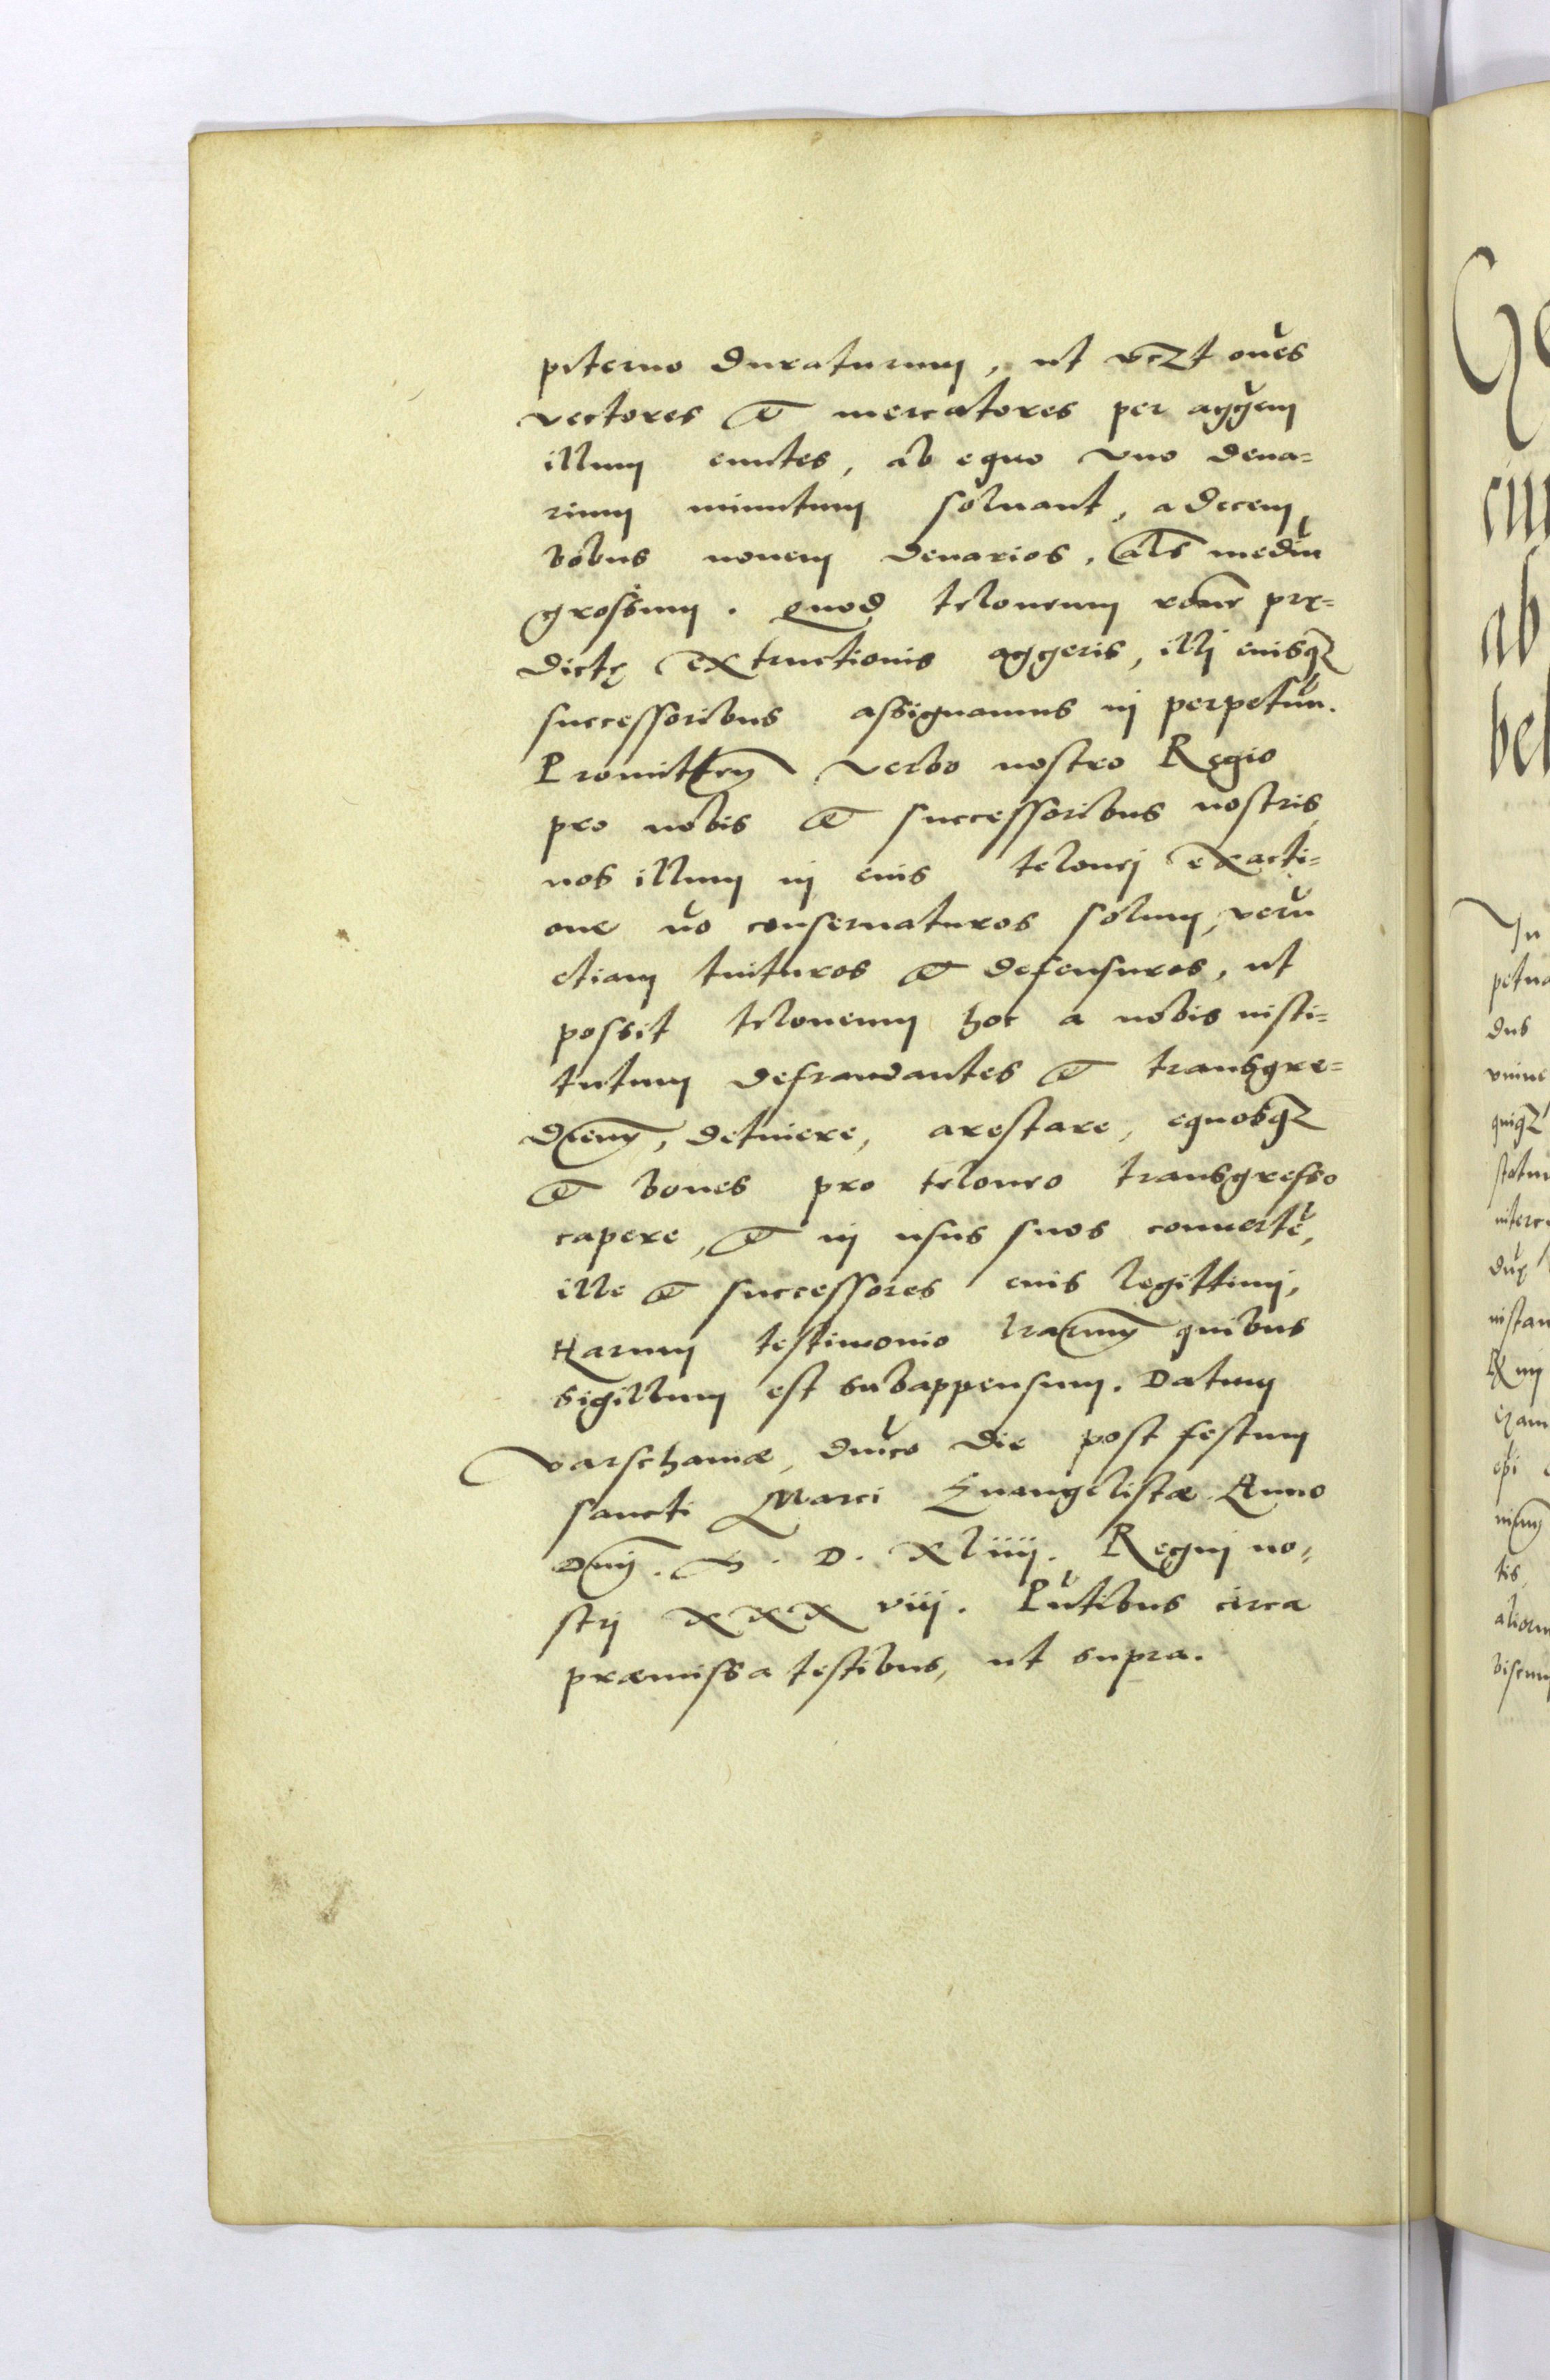 piterno duraturum, ut vczt om̄es
vectores & mercatores per aggem
illum euntes, ab equo uno dena=
rium minutum soluant, a decem
bobus nouem denarios, als mediu
grossum. Quod teloneum rōne prę=
dictę extructionis aggeris, illj eiusq3
successoribus assignamus in perpetuu.
Promitten verbo nostro Regio
pro nobis & successoribus nostris,
nos illum in eius telonej exacti=
one no conseruaturos solum, veru
etiam tuituros & defensuros, ut
possit teloneum hoc a nobis insti=
tutum defraudantes & transgre=
dien, detinere, arestare, equosq3
& boues pro teloneo transgresso
capere, & in usus suos conuerte,
ille & successores eius legittimj,
Harum testimonio lrarum quibus
sigillum est subappensum. Datum
Varschauiæ, dnico die post festum
sancti Marci Euangelistæ. Anno
Dnj. M. D. Xliiij. Regnj no=
strj XXX viij. Pntibus circa
præmissa testibus, ut supra.
ab
In
petua
dus
quiq3
statu
interc
instan
tis